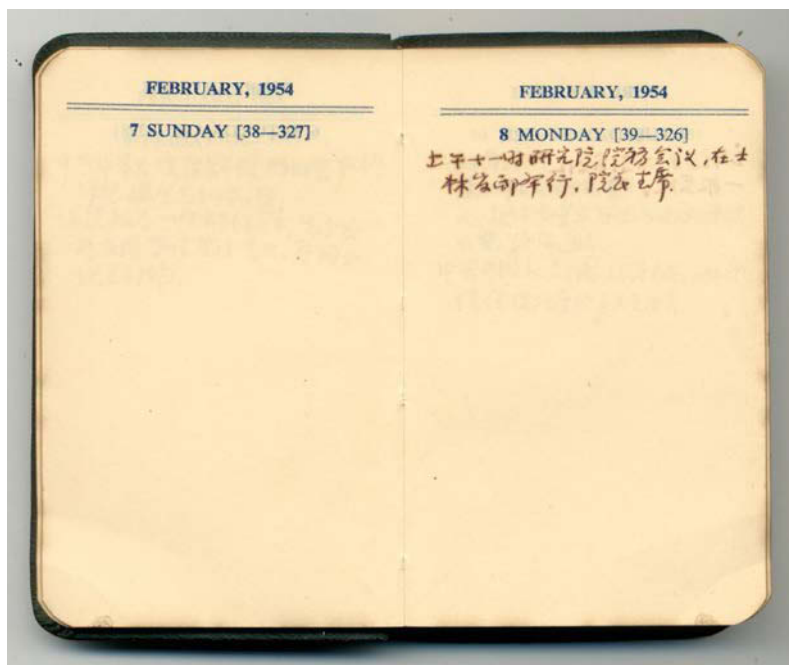 FEBRUARY, 1954
7 SUNDAY [38—327]
FEBRUARY, 1954
8 MONDAY [39—326]
上午十一时研究院院务会议，在士
林官邸举行，院长主席